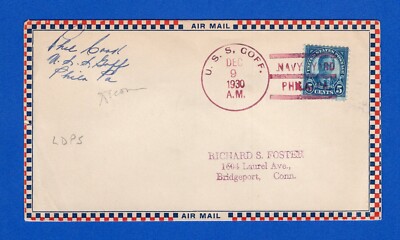 AIR MAIL
Phil
Phila Pa
U. S. S. GOFF.
DEC
9
1930
A.M.
NAVY YARD
PHILA
5 CENTS 5
LDPS
RICHARD S. FOSTER
1604 Laurel Ave.,
Bridgeport, Conn.
AIR MAIL